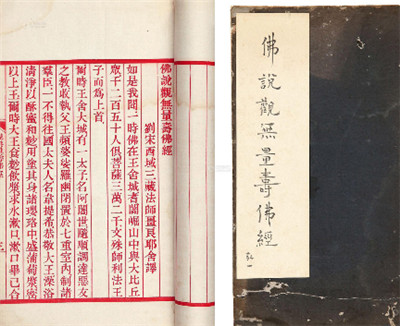 佛說觀無量壽佛經
劉宋西域三藏法師畺良耶舍譯
如是我聞一時佛在王舍城耆闍崛山中與大比丘
眾千二百五十人俱菩薩三萬二千文殊師利法王
子而爲上首
爾時王舍大城有一太子名阿闍世隨順調達惡友
之教收執父王頻婆娑羅幽閉置於七重室內制諸
羣臣一不得往國大夫人名韋提希恭敬大王澡浴
清淨以酥蜜和麨用塗其身諸瓔珞中盛蒲萄漿密
以上王爾時大王食麨飲漿求水漱口漱口畢已合
佛說觀無量壽佛經
弘一